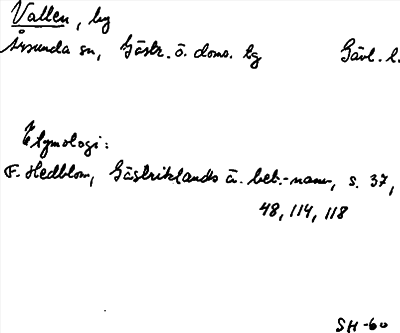 Vallen, by
Årsunda sn, Gästr. ö. doms. bg Gävl. l.
Etymologi:
F. Hedblom, Gästriklands ä. beb.-namn, s. 37,
48, 114, 118
SH-60